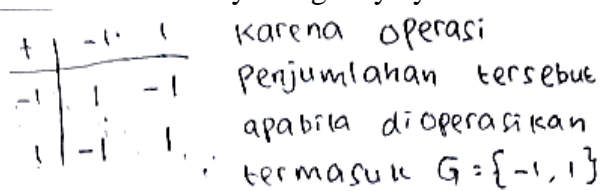 + | -1 1
-1 | 1 -1
1 | -1 1
karena operasi
Penjumlahan tersebut
apabila dioperasikan
termasuk G = {-1, 1}